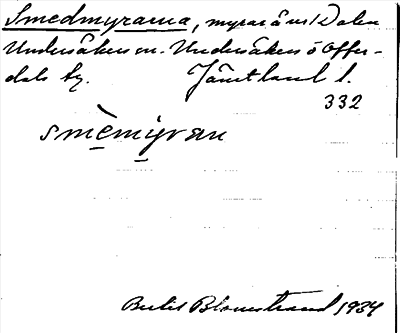 Smedmyrarna, myrar å ns! Dalen
Undersåkers sn. Undersåkers o Offer-
dals tg. Jämtland l.
332
smèmyran
Bertil Blomstrand 1934